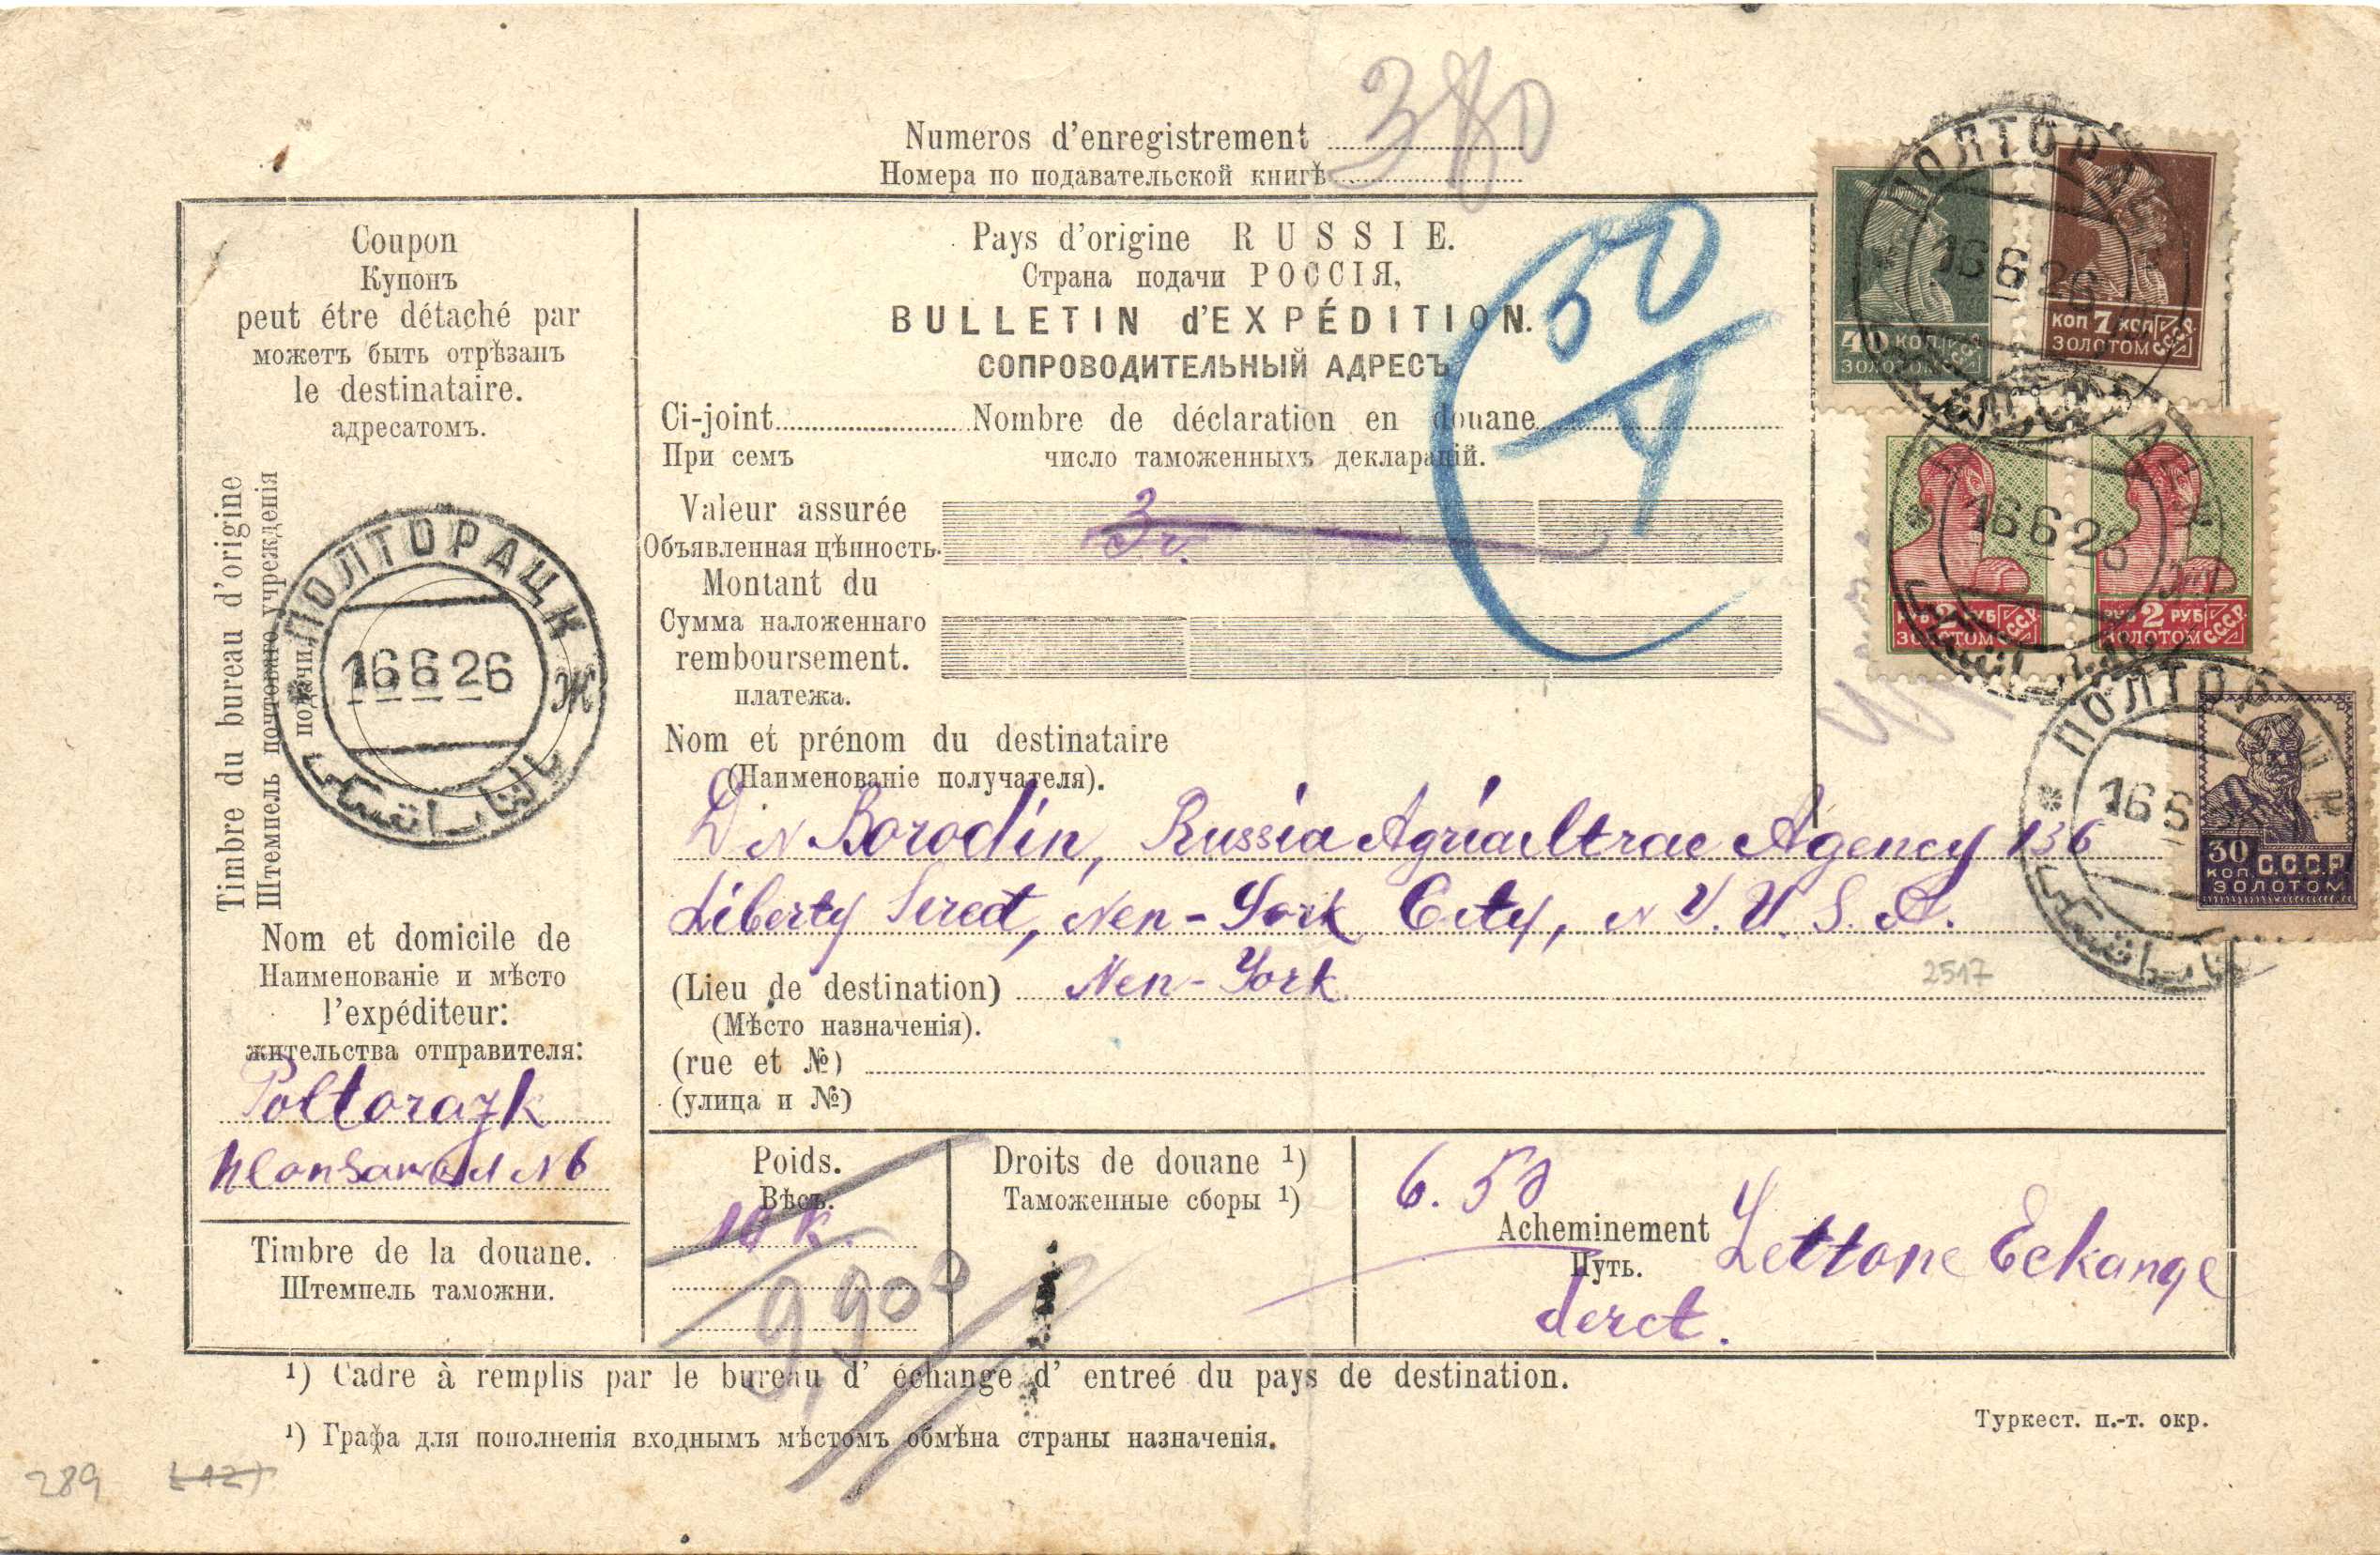 Numeros d'enregistrement 380
Номера по подавательской книгѣ
Coupon
Купонъ
peut étre détaché par
можетъ быть отрѣзанъ
le destinataire.
адресатомъ.
Timbre du bureau d'origine
Штемпель почтоваго учрежденія
подачи.
ПОЛТОРАЦК
16 6 26
Ж
Nom et domicile de
Наименованіе и мѣсто
l'expéditeur:
жительства отправителя:
Poltorazk
N6
Timbre de la douane.
Штемпель таможни.
Pays d'origine RUSSIE.
Страна подачи РОССІЯ,
BULLETIN d'EXPÉDITION.
СОПРОВОДИТЕЛЬНЫЙ АДРЕСЪ
50
Ci-joint Nombre de déclaration en douane
При семъ число таможенныхъ декларацій.
Valeur assurée
Объявленная цѣнность.
Montant du
Сумма наложеннаго
remboursement.
платежа.
Nom et prénom du destinataire
(Наименованіе получателя).
D N Borodin, Russia Agriacltrae Agency 136
Liberty Sereet, Nen-York City, N Y. U. S. A.
(Lieu de destination) Nen-York
(Мѣсто назначенія).
(rue et №)
(улица и №)
2517
Poids.
Вѣсъ.
10 k.
9,900
Droits de douane ¹)
Таможенные сборы ¹)
6.50
Acheminement Lettone Eckange
Путь.
derct.
¹) Cadre à remplis par le bureau d' échange d' entreé du pays de destination.
¹) Графа для пополненія входнымъ мѣстомъ обмѣна страны назначенія.
Туркест. п.-т. окр.
289
ПОЛТОРАЦК
16 6 26
40 КОП.
ЗОЛОТОМ
КОП 7 КОП
ЗОЛОТОМ СССР
16 6 26
РУБ 2 РУБ
ЗОЛОТОМ СССР
РУБ 2 РУБ
ЗОЛОТОМ СССР
ПОЛТОРАЦК
16 6
30 С.С.С.Р.
КОП ЗОЛОТОМ